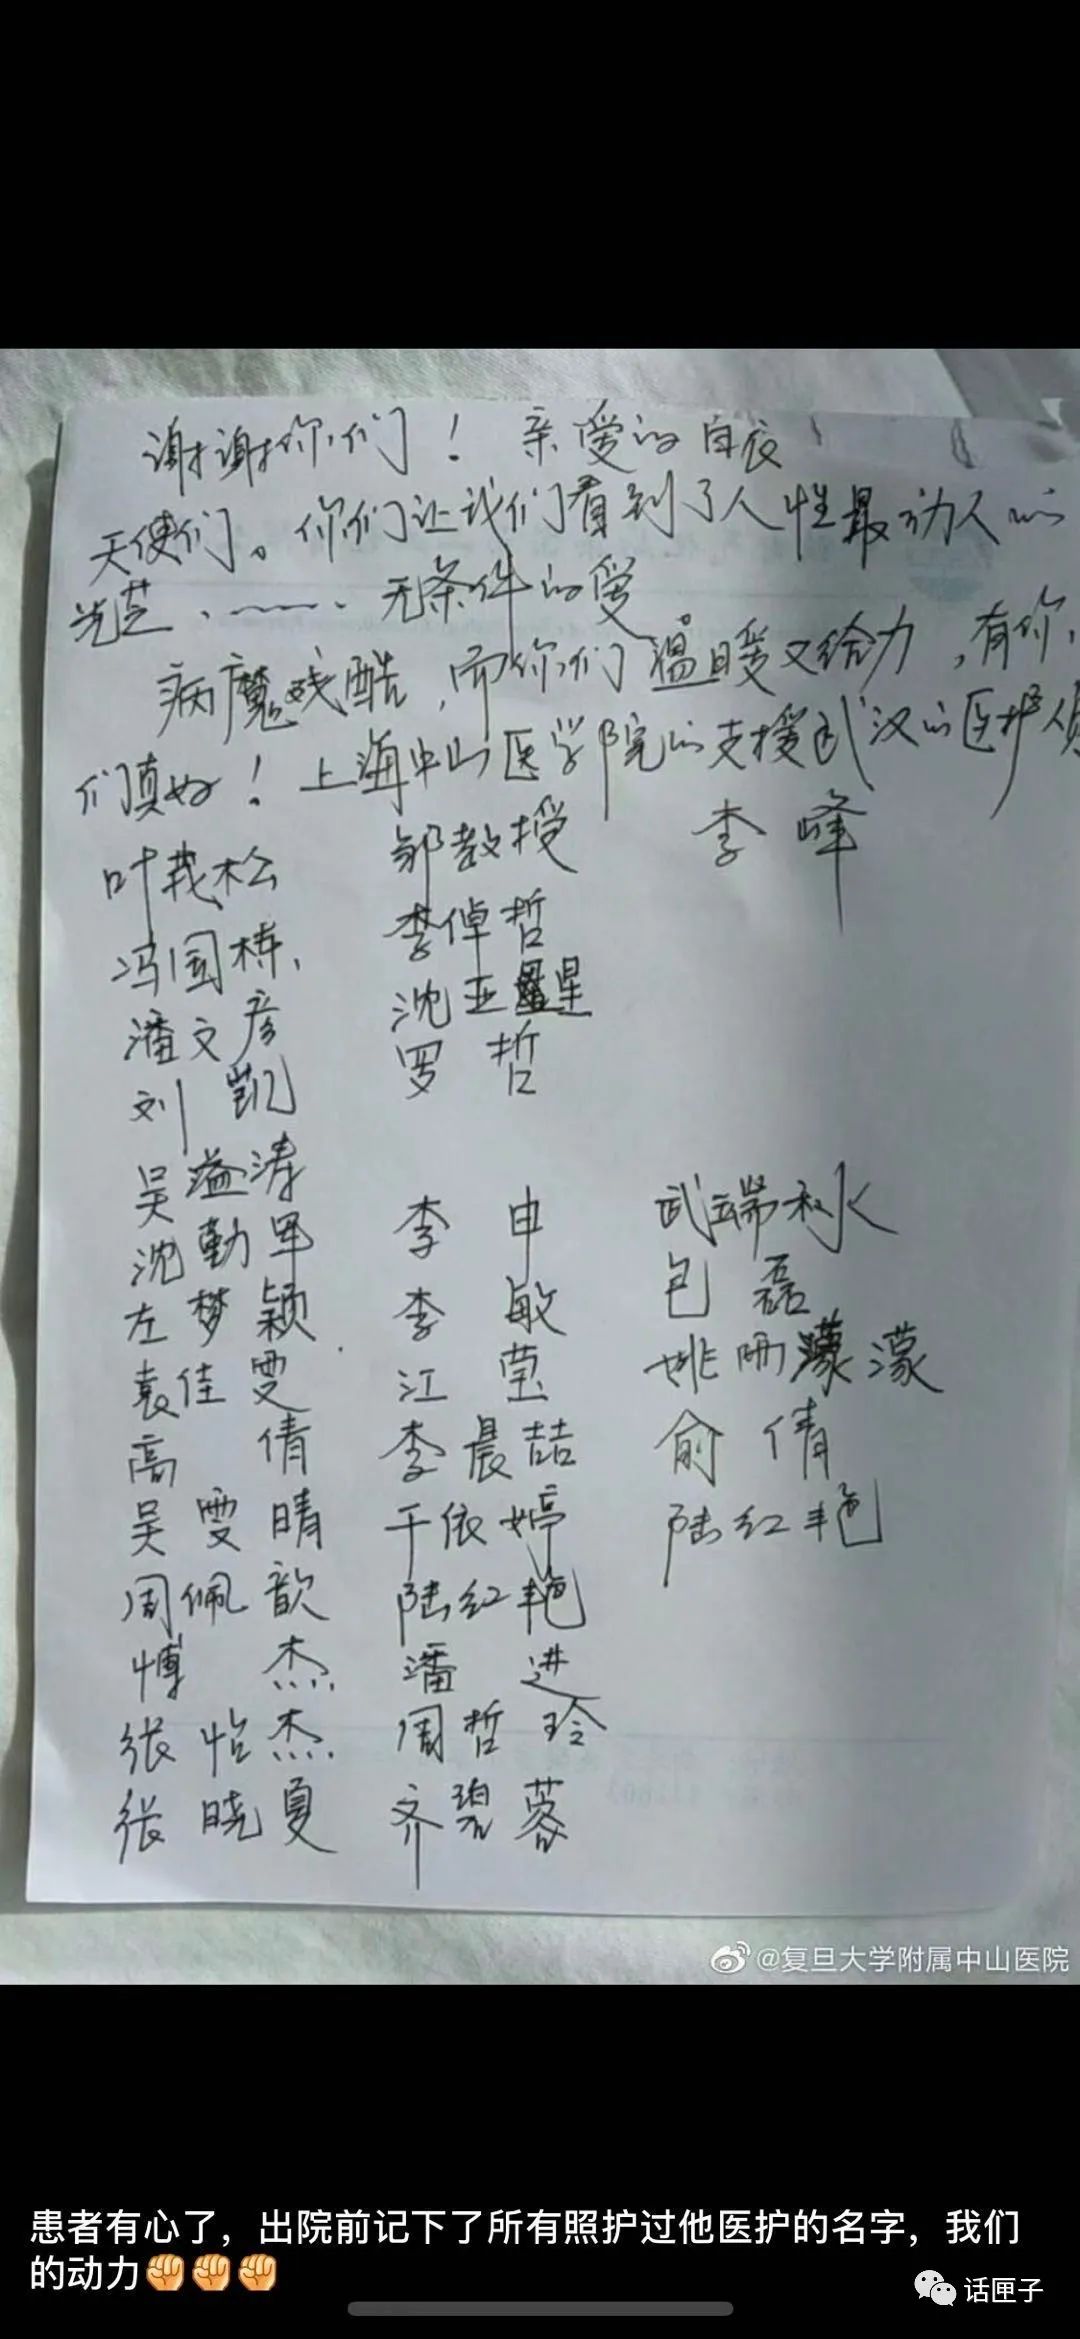 谢谢你们！亲爱的白衣
天使们。你们让我们看到了人性最动人的
光芒、——、无条件的爱。
病魔残酷，而你们温暖又给力，有你，
们真好！上海中山医学院的支援武汉的医护
叶茂松 邹教授 李峰
冯国栋、 李倬哲
潘文彦 沈亚星
刘凯 罗哲
吴溢涛
沈勤军 李申 武端秋水
左梦颖 李敏 包磊
袁佳雯 江莹 姚雨濛
高倩 李晨喆 俞倩
吴雯晴 干依婷 陆红艳
周佩歆 陆红艳
博杰 潘进
张怡杰 周哲玲
张晓夏 齐碧蓉
@复旦大学附属中山医院
患者有心了，出院前记下了所有照护过他医护的名字，我们
的动力✊✊✊
话匣子